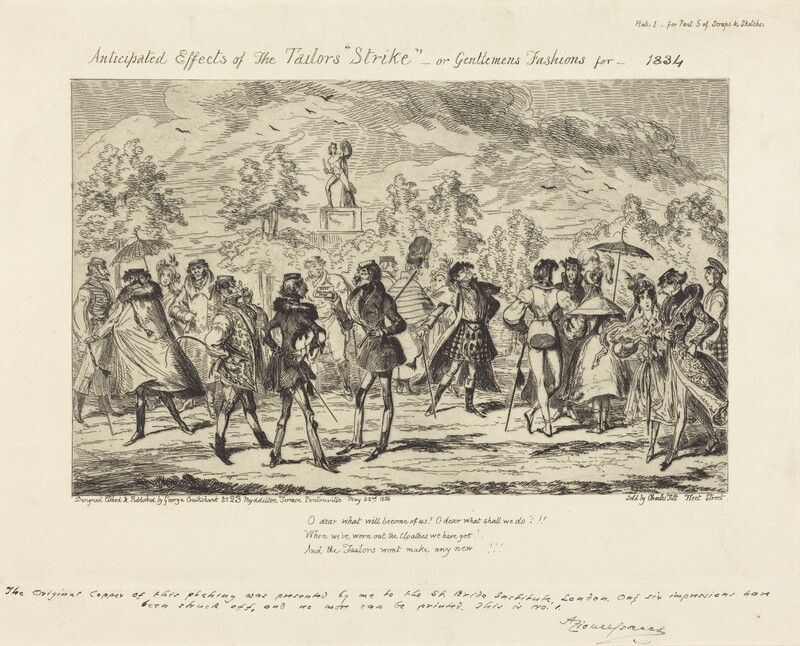 Plate 1 - for Part 5 of Scraps & Sketches
Anticipated Effects of The Tailors "Strike" - or Gentlemens Fashions for - 1834
Designed Etched & Published by George Cruikshank No 23 Myddelton Terrace Pentonville May 22nd 1834
Sold by Charles Tilt Fleet Street
O dear what will become of us! O dear what shall we do?!!
When we've worn out the Cloathes we have got!
And the Tailors wont make any new !!!
The Original Copper of this etching was presented by me to the St. Bride Institute, London. Only six impressions have
been struck off, and no more can be printed. This is No. 1.